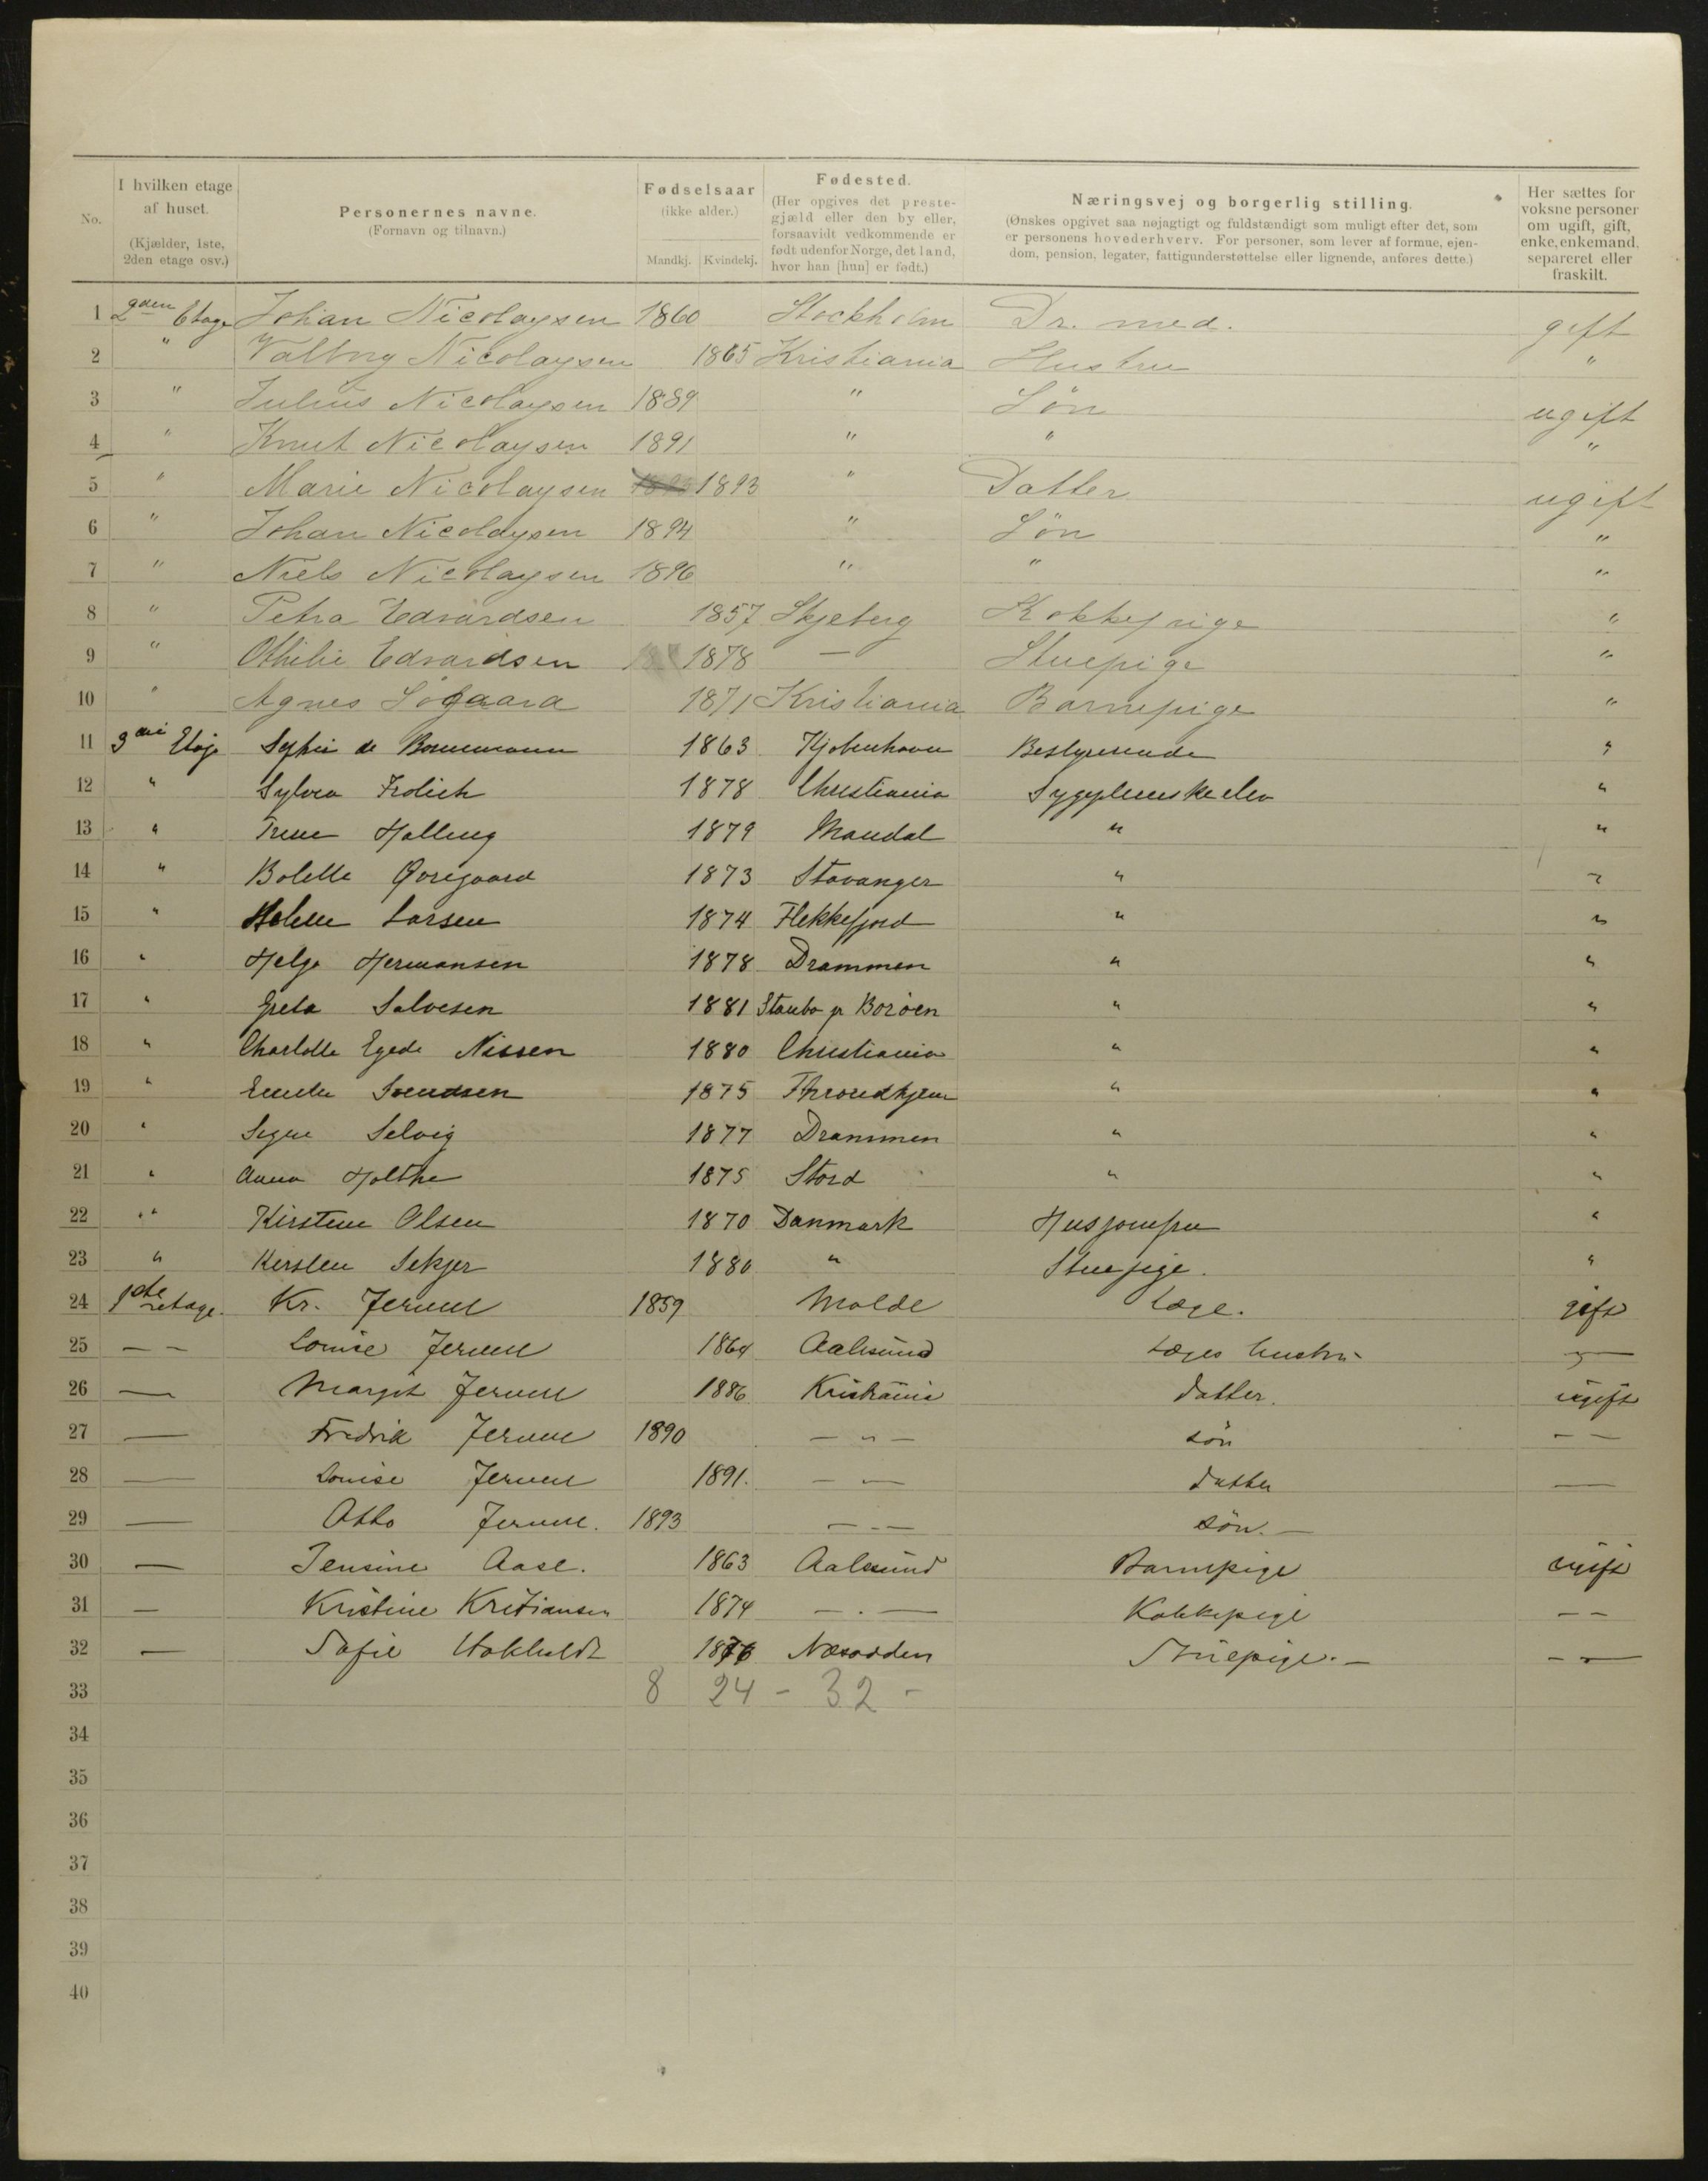 No.
I hvilken etage af huset. (Kjælder, 1ste, 2den etage osv.)
Personernes navne. (Fornavn og tilnavn.)
Fødselsaar (ikke alder.) Mandkj. Kvindekj.
Fødested. (Her opgives det prestegjæld eller den by eller, forsaavidt vedkommende er født udenfor Norge, det land, hvor han [hun] er født.)
Næringsvej og borgerlig stilling. (Ønskes opgivet saa nøjagtigt og fuldstændigt som muligt efter det, som er personens hovederhverv. For personer, som lever af formue, ejendom, pension, legater, fattigunderstøttelse eller lignende, anføres dette.)
Her sættes for voksne personer om ugift, gift, enke, enkemand, separeret eller fraskilt.
1 2den Etage Johan Nicolaysen 1860 Stockholm Dr. med. gift
2 " Valborg Nicolaysen 1865 Kristiania Hustru "
3 " Julius Nicolaysen 1889 " Søn ugift
4 " Knut Nicolaysen 1891 " " "
5 " Marie Nicolaysen 1893 " Datter ugift
6 " Johan Nicolaysen 1894 " Søn "
7 " Niels Nicolaysen 1896 " " "
8 " Petra Edvardsen 1857 Skjeberg Kokkepige "
9 " Othilie Edvardsen 1878 — Stuepige "
10 " Agnes Søgaard 1871 Kristiania Barnepige "
11 3die Etage Sophie de 1863 Kjøbenhavn Bestyrerinde "
12 " Sylvia Frølich 1878 Christiania Sygepleierskeelev "
13 " Halling 1879 Mandal " "
14 " Bolette 1873 Stavanger " "
15 " Larsen 1874 Flekkefjord " "
16 " Helga Hermansen 1878 Drammen " "
17 " Greta Salvesen 1881 Staubo pr Borøen " "
18 " Charlotte Egede Nissen 1880 Christiania " "
19 " Svendsen 1875 Throndhjem " "
20 " Signe Selvig 1877 Drammen " "
21 " Anna Holthe 1875 Stord " "
22 " Kirstine Olsen 1870 Danmark Husjomfru "
23 " Kirsten Sekjer 1880 " Stuepige. "
24 1ste etage. Kr. Jervell 1859 Molde Læge. gift
25 — — Louise Jervell 1864 Aalesund Læges hustru —"—
26 — Margit Jervell 1886 Kristiania datter. ugift
27 — Fredrik Jervell 1890 — " — søn — —
28 — Louise Jervell 1891. — — datter —
29 — Otto Jervell. 1893 — - — søn. —
30 — Jensine Aase. 1863 Aalesund Barnepige ugift
31 — Kristine Kristiansen 1874 — . — Kokkepige — —
32 — Sofie 1876 Næsodden Stuepige. — — —
33 8 24 - 32 -
34
35
36
37
38
39
40